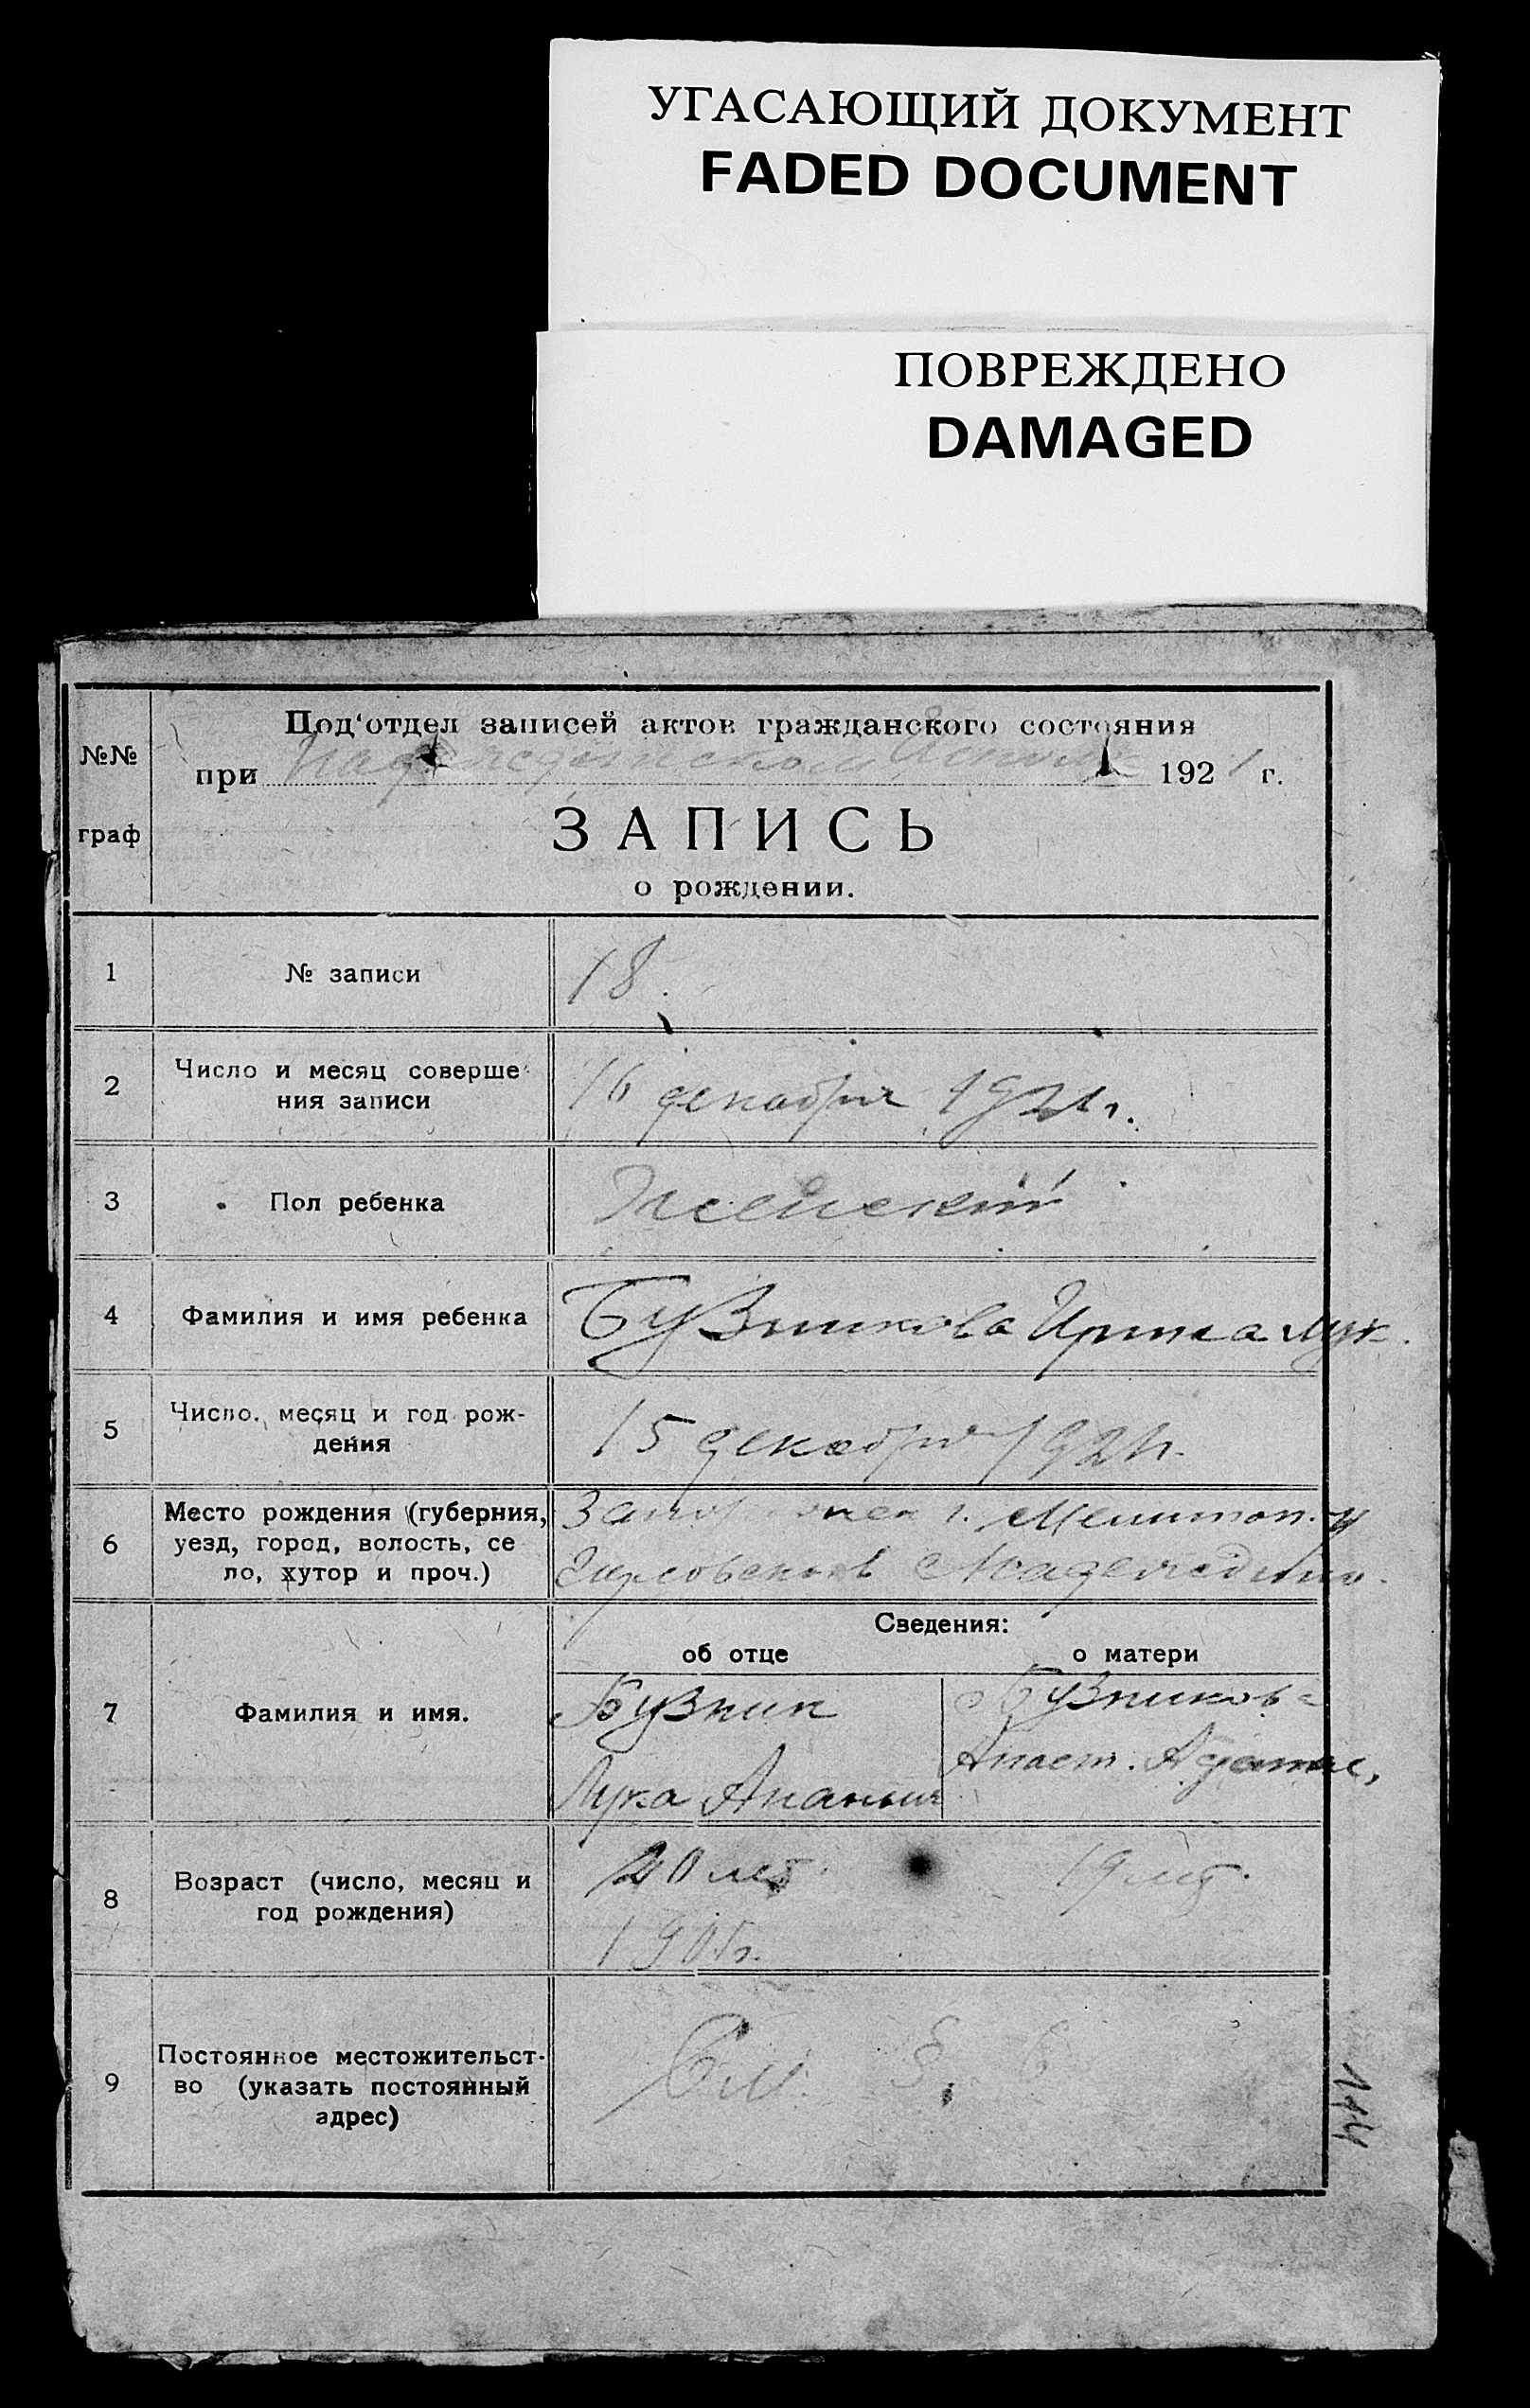 УГАСАЮЩИЙ ДОКУМЕНТ
FADED DOCUMENT
ПОВРЕЖДЕНО
DAMAGED
№№
граф
Под'отдел записей актов гражданского состояния
при 1921 г.
ЗАПИСЬ
о рождении.
1
№ записи
18.
2
Число и месяц соверше
ния записи
16 декабря 1921 г.
3
Пол ребенка
Женский
4
Фамилия и имя ребенка
Бузникова Ирина Лук.
5
Число, месяц и год рож-
дения
15 декабря 1921 г.
6
Место рождения (губерния,
уезд, город, волость, се
ло, хутор и проч.)
г. Мелитоп. у
Сведения:
об отце
о матери
7
Фамилия и имя.
Бузник
Лука Ананьич
Бузникова
Анаст.
8
Возраст (число, месяц и
год рождения)
20 лет
1901 г.
19 лет.
9
Постоянное местожительст-
во (указать постоянный
адрес)
См.
144